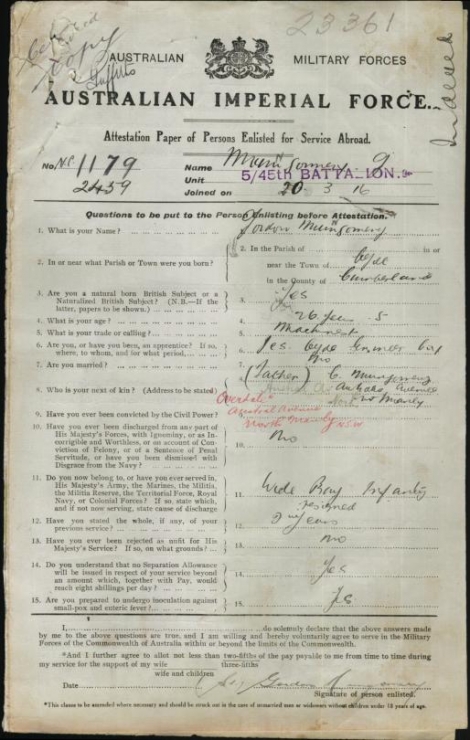 23361
Copy
Indexed
AUSTRALIAN MILITARY FORCES
AUSTRALIAN IMPERIAL FORCE.
Attestation Paper of Persons Enlisted for Service Abroad.
No. N.P. 1179 Name G
2459 Unit 5/45th BATTALION.
Joined on 20 3 16
Questions to be put to the Person Enlisting before Attestation.
1. What is your Name? 1. Gordon Muntgomery
2. In or near what Parish or Town were you born? 2. In the Parish of in or
near the Town of Clyde
in the County of Cumberland
3. Are you a natural born British Subject or a
Naturalized British Subject? (N.B.—If the
latter, papers to be shown.) 3. Yes
4. What is your age? 4. 26 5
5. What is your trade or calling? 5. Machinist
6. Are you, or have you been, an apprentice? If so,
where, to whom, and for what period. 6. Yes. Clyde
7. Are you married? 7. No
8. Who is your next of kin? (Address to be stated) 8. (Father) C Muntgomery
Avenue
Manly
Austral Avenue
North Manly N.S.W
9. Have you ever been convicted by the Civil Power? 9.
10. Have you ever been discharged from any part of
His Majesty's Forces, with Ignominy, or as In-
corrigible and Worthless, or on account of Con-
viction of Felony, or of a Sentence of Penal
Servitude, or have you been dismissed with
Disgrace from the Navy? 10. No
11. Do you now belong to, or have you ever served in,
His Majesty's Army, the Marines, the Militia,
the Militia Reserve, the Territorial Force, Royal
Navy, or Colonial Forces? If so, state which,
and if not now serving, state cause of discharge 11. Wide Bay Infantry
resigned
2 years
12. Have you stated the whole, if any, of your
previous service? 12.
13. Have you ever been rejected as unfit for His
Majesty's Service? If so, on what grounds? 13. No
14. Do you understand that no Separation Allowance
will be issued in respect of your service beyond
an amount which, together with Pay, would
reach eight shillings per day? 14. Yes
15. Are you prepared to undergo inoculation against
small-pox and enteric fever? 15. Yes
I, do solemnly declare that the above answers made
by me to the above questions are true, and I am willing and hereby voluntarily agree to serve in the Military
Forces of the Commonwealth of Australia within or beyond the limits of the Commonwealth.
*And I further agree to allot not less than two-fifths of the pay payable to me from time to time during
three-fifths
my service for the support of my wife
wife and children
Date Gordon Muntgomery
Signature of person enlisted.
*This clause to be amended where necessary and should be struck out in the case of unmarried men or widowers without children under 18 years of age.